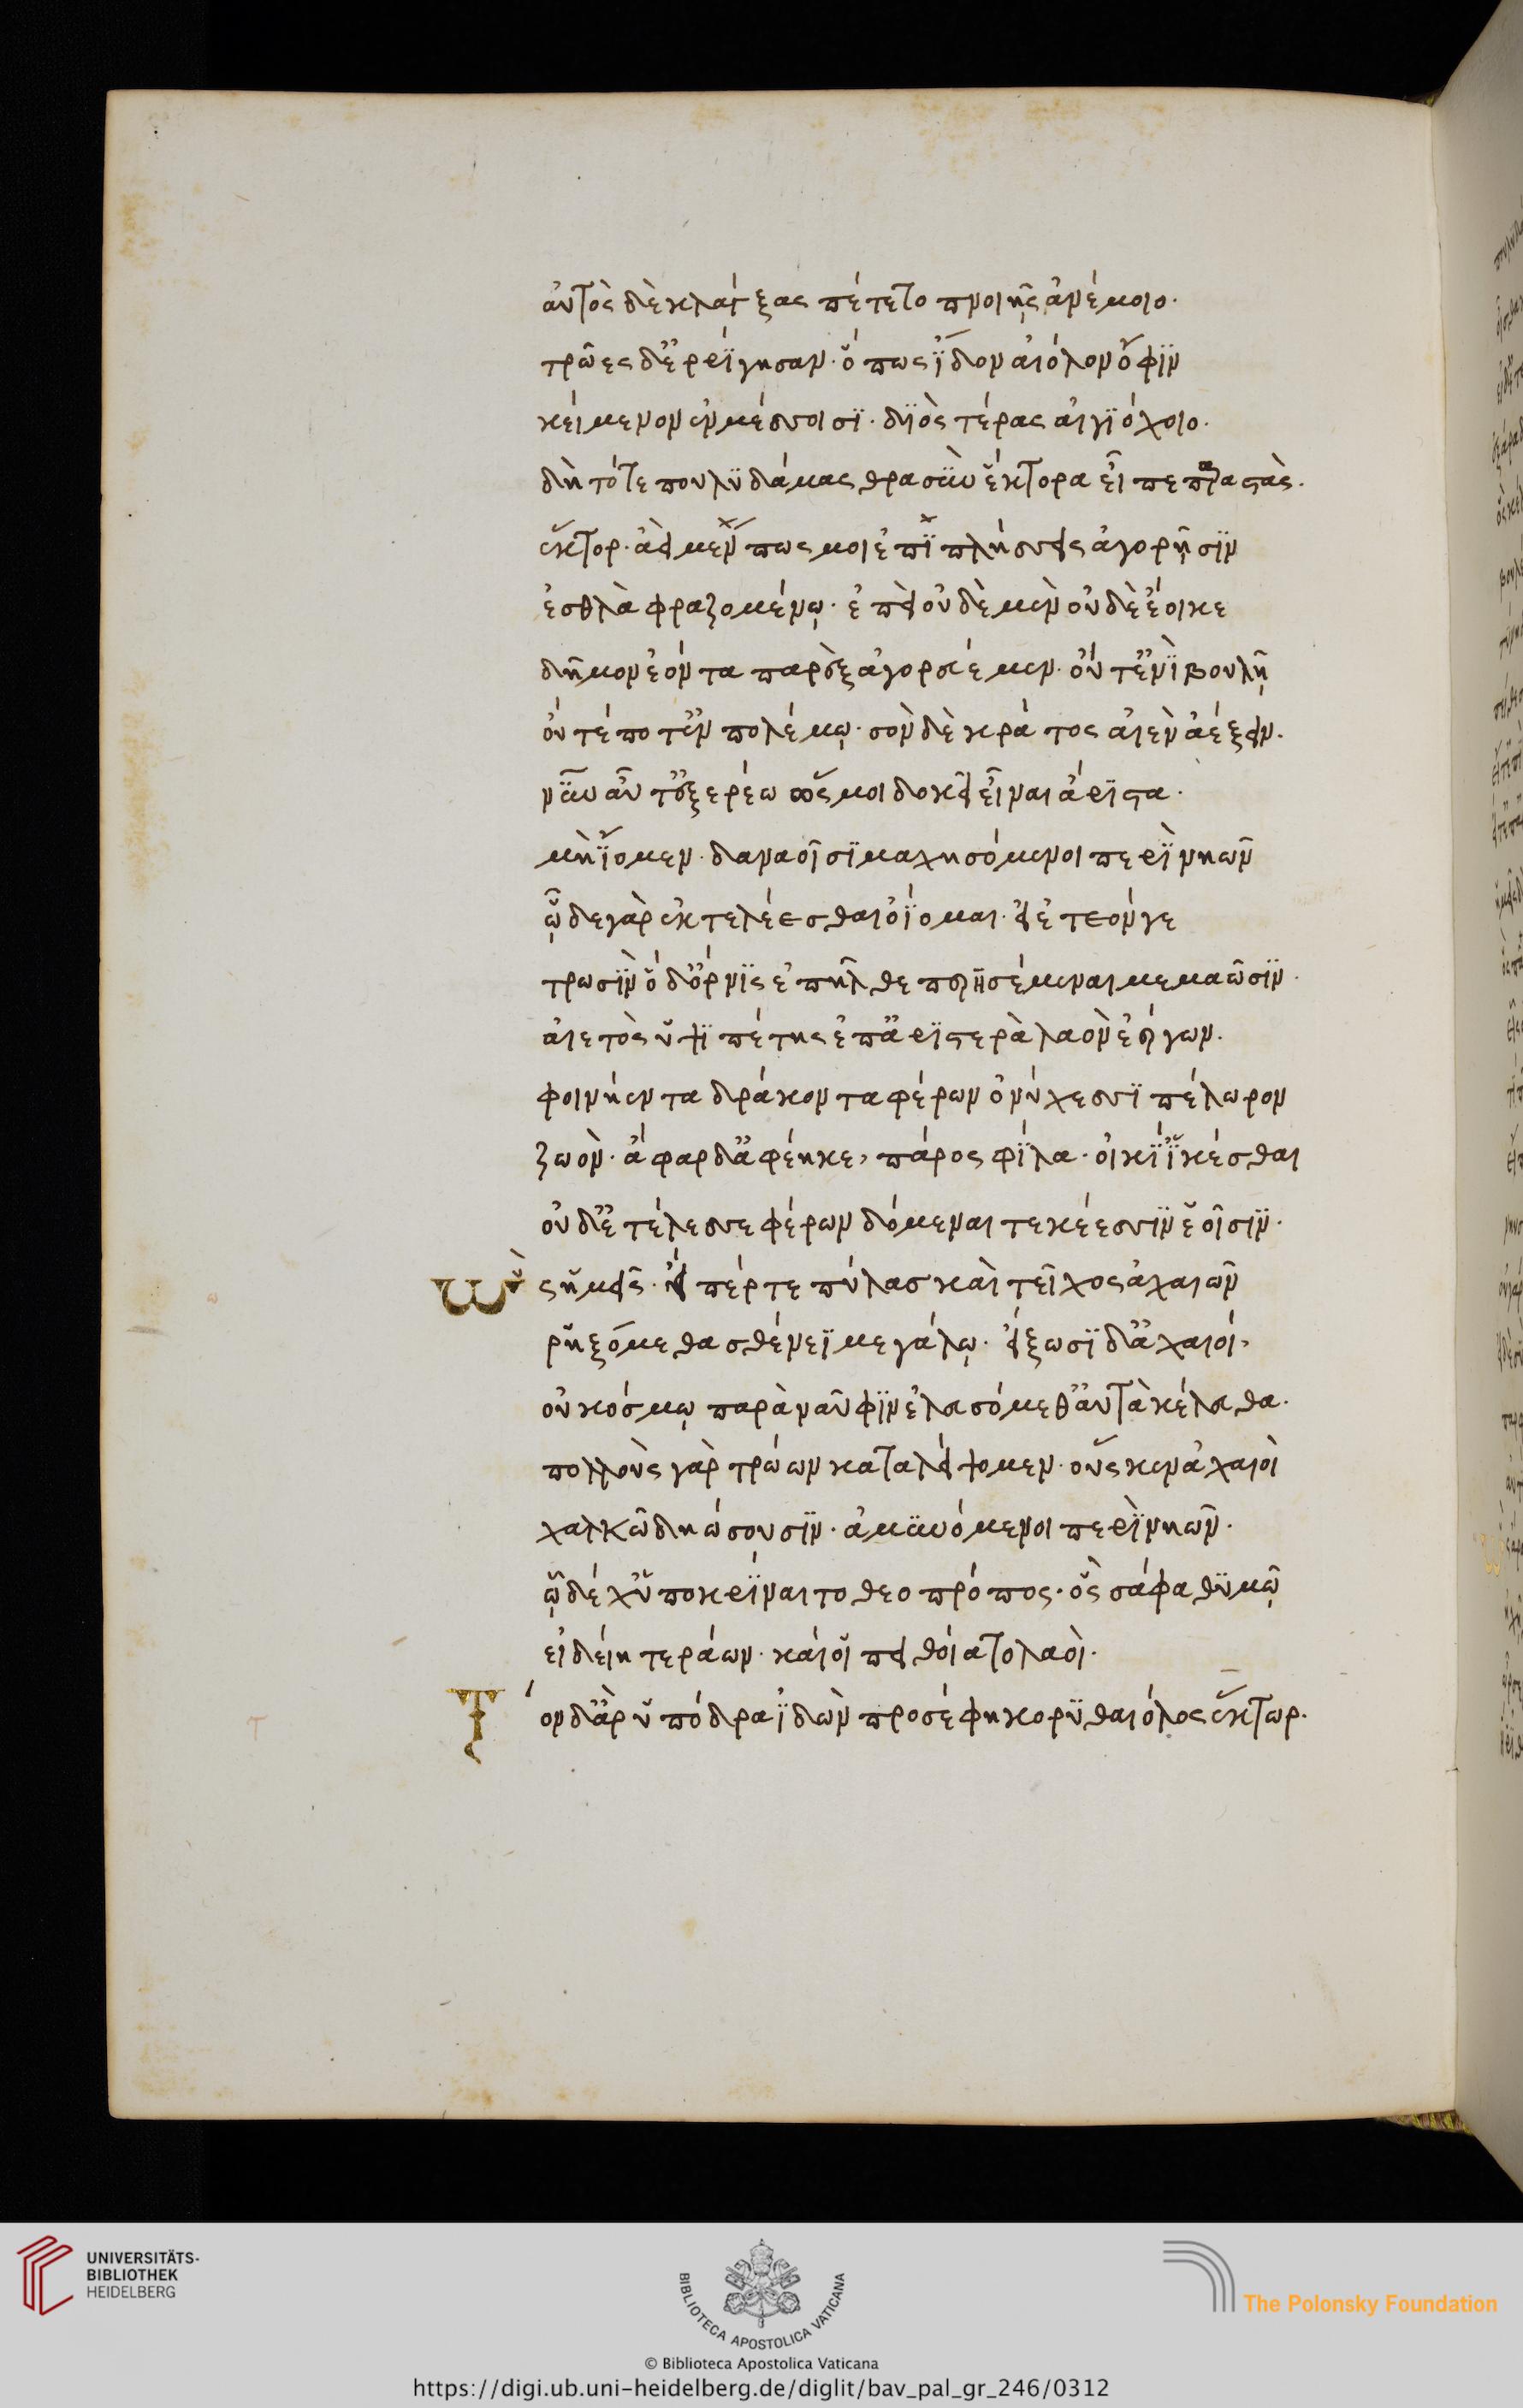 αὐτὸς δὲ κλάγξας πέτετο πνοιῇς ἀνέμοιο·
τρῶες δ' ἐρρίγησαν· ὅπως ἴδον αἰόλον ὄφιν
κείμενον ἐν μέσσοισι· διὸς τέρας αἰγιόχοιο·
δὴ τότε πουλυδάμας θρασὺν ἕκτορα εἶπε παραστάς·
ἕκτορ· ἀεὶ μέν πως μοι ἐπιπλήσσεις ἀγορῇσιν
ἐσθλὰ φραζομένῳ· ἐπεὶ οὐδὲ μὲν οὐδὲ ἔοικε
δῆμον ἐόντα παρὲξ ἀγορευέμεν· οὔτ' ἐνὶ βουλῇ
οὔτέ ποτ' ἐν πολέμῳ· σὸν δὲ κράτος αἰὲν ἀέξειν·
νῦν αὖτ' ἐξερέω ὥς μοι δοκεῖ εἶναι ἄριστα·
μὴ ἴομεν· δαναοῖσι μαχησόμενοι περὶ νηῶν
ὧδε γὰρ ἐκτελέεσθαι ὀΐομαι· εἰ ἐτεόν γε
τρωσὶν ὅδ' ὄρνις ἐπῆλθε περησέμεναι μεμαῶσιν·
αἰετὸς ὑψιπέτης ἐπ' ἀριστερὰ λαὸν ἐέργων·
φοινήεντα δράκοντα φέρων ὀνύχεσσι πέλωρον
ζωόν· ἄφαρ δ' ἀφέηκε, πάρος φίλα· οἰκί' ἱκέσθαι
οὐδ' ἐτέλεσσε φέρων δόμεναι τεκέεσσιν ἑοῖσιν·
Ὣς ἡμεῖς· εἴ πέρ τε πύλας καὶ τεῖχος ἀχαιῶν
ῥηξόμεθα σθένεϊ μεγάλῳ· εἴξωσι δ' ἀχαιοί,
οὐ κόσμῳ παρὰ ναῦφιν ἐλευσόμεθ' αὐτὰ κέλευθα·
πολλοὺς γὰρ τρώων καταλείψομεν· οὕς κεν ἀχαιοὶ
χαλκῶ δηώσουσιν· ἀμυνόμενοι περὶ νηῶν·
ὧδέ χ' ὑποκρίναιτο θεοπρόπος· ὃς σάφα θυμῷ
εἰδείη τεράων· καί οἱ πειθοίατο λαοὶ·
Τὸν δ' ἄρ' ὑπόδρα ἰδὼν προσέφη κορυθαιόλος ἕκτωρ·
UNIVERSITÄTS-
BIBLIOTHEK
HEIDELBERG
BIBLIOTECA APOSTOLICA VATICANA
The Polonsky Foundation
© Biblioteca Apostolica Vaticana
https://digi.ub.uni-heidelberg.de/diglit/bav_pal_gr_246/0312